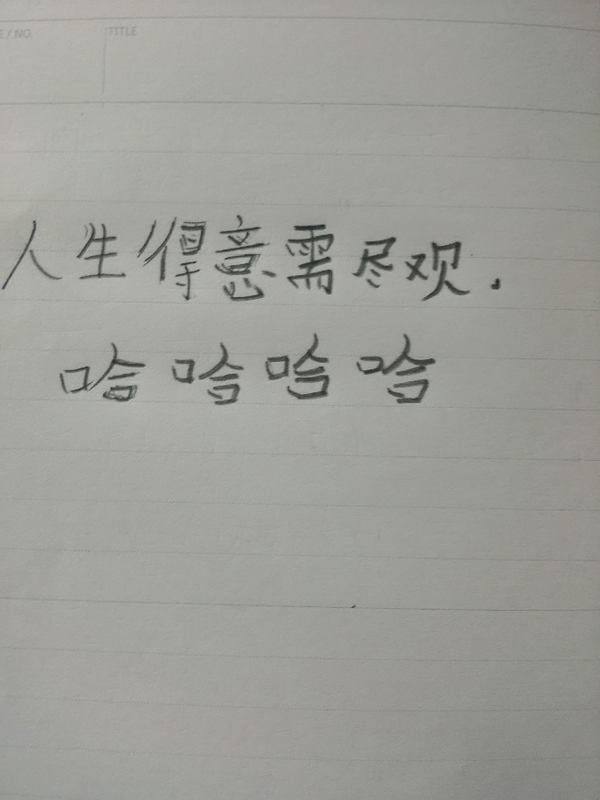 E/NO. TITLE
人生得意需尽观.
哈哈哈哈